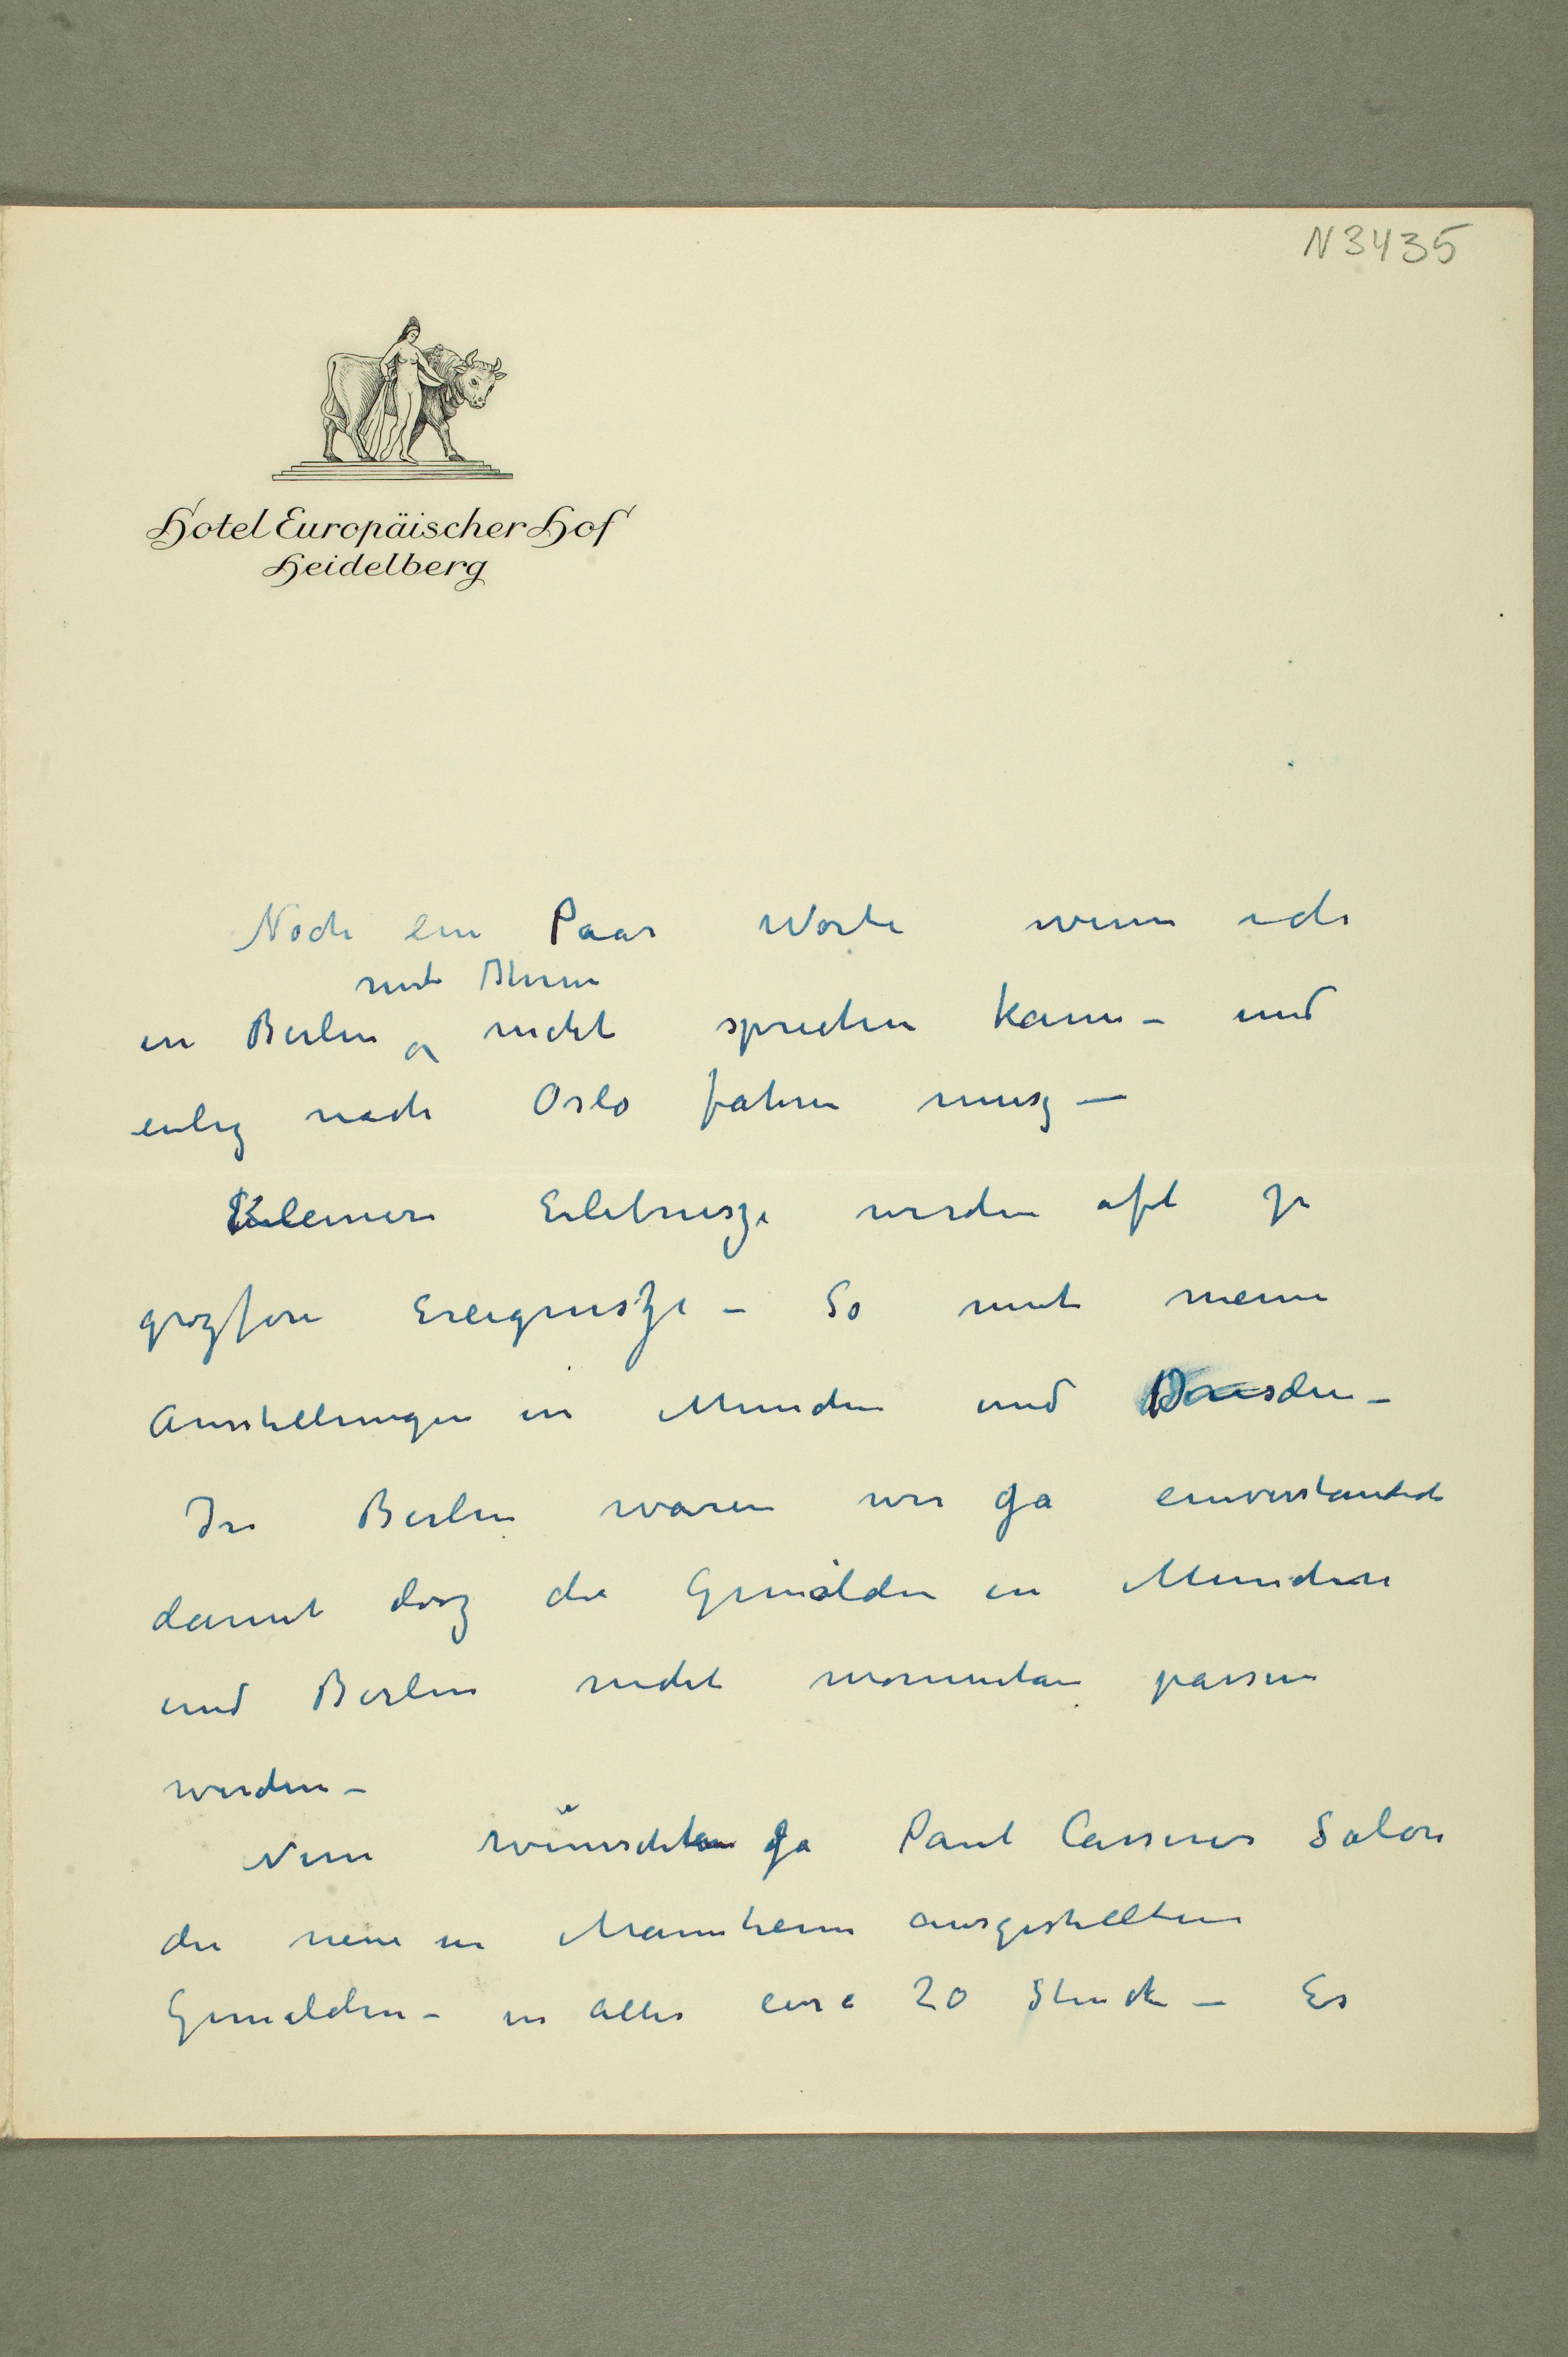 N 3435
Hotel Europäischer Hof
Heidelberg
Noch ein Paar Worte wenn ich
mit Ihnen
in Berlin nicht sprechen kann – und
eilig nach Oslo fahren musz –
Kleinere Erlebnisze werden oft zu
grozsen Ereignisze – So mit meine
Ausstellungen in Munchen und Dresden –
In Berlin waren wir ja einverstanden
damit dasz die Gemälden in Munchen
und Berlin nicht momentan passen
werden –
Nun wünschten ja Paul Cassirer Salon
die neue in Mannheim ausgestellten
Gemälden – in Alles circa 20 Stuck – Es